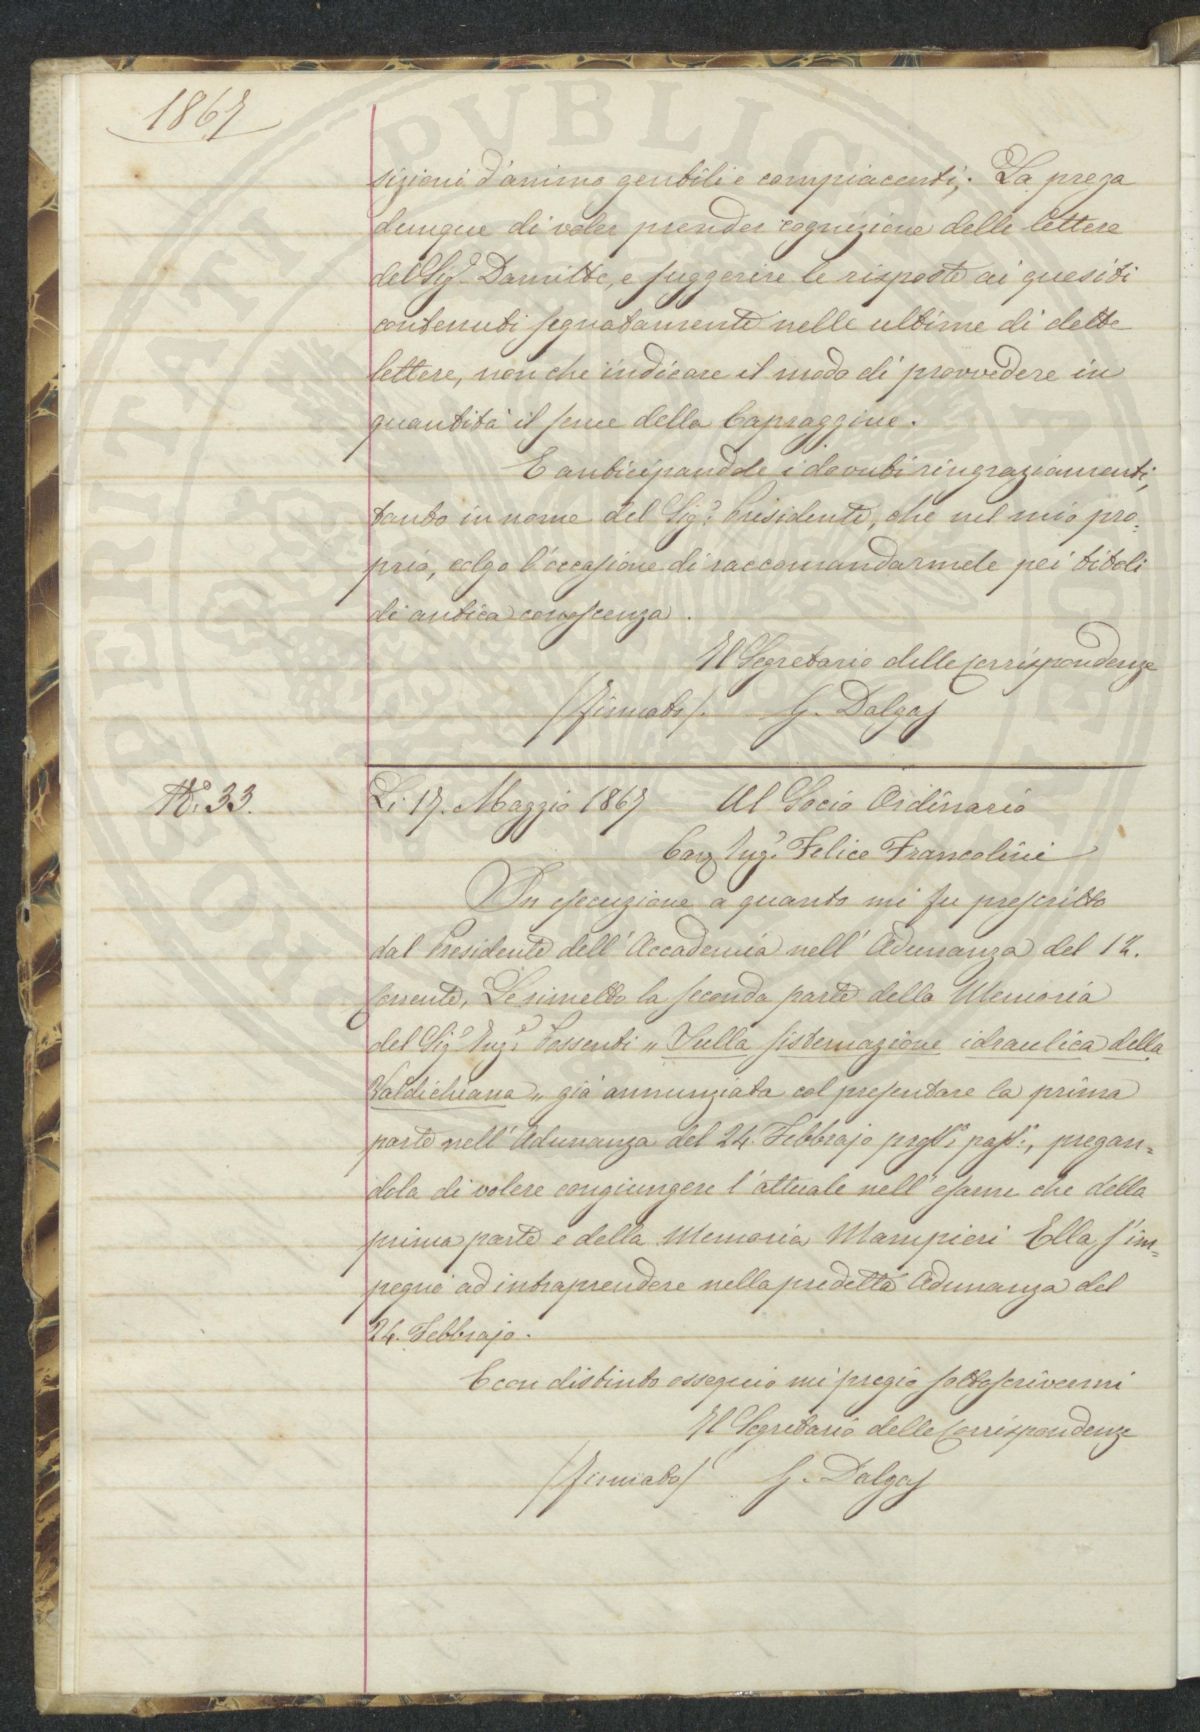 1867
sizioni d'animo gentili e compiacenti; La prega
dunque di voler prender cognizione delle lettere
del Sig.r Damitte, e suggerire le risposte ai quesiti
contenuti segnatamente nelle ultime di dette
lettere, non che indicare il modo di provvedere in
quantità il seme della Capraggine.
E anticipandole i dovuti ringraziamenti,
tanto in nome del Sig.r Presidente, che nel mio pro=
prio, colgo l'occasione di raccomandarmele pei titoli
di antica conoscenza.
Il Segretario delle Corrispondenze
/firmato/. G. Dalgas
N.o 33.
Li 17. Maggio 1867 Al Socio Ordinario
Cav Ing.e Felice Francolini
In esecuzione a quanto mi fu prescritto
dal Presidente dell'Accademia nell'Adunanza del 12.
Corrente, Le rimetto la seconda parte della Memoria
del Sig.r Ing.e Possenti „ Sulla sistemazione idraulica della
Valdichiana „ già annunziata col presentare la prima
parte nell'Adunanza del 24. Febbrajo pross.o pass.o, pregan=
dola di volere congiungere l'attuale nell'esame che della
prima parte e della Memoria Mampieri Ella s'im=
pegnò ad intraprendere nella predetta Adunanza del
24. Febbrajo.
E con distinto ossequio mi pregio sottoscrivermi
Il Segretario delle Corrispondenze
/firmato/ G. Dalgas